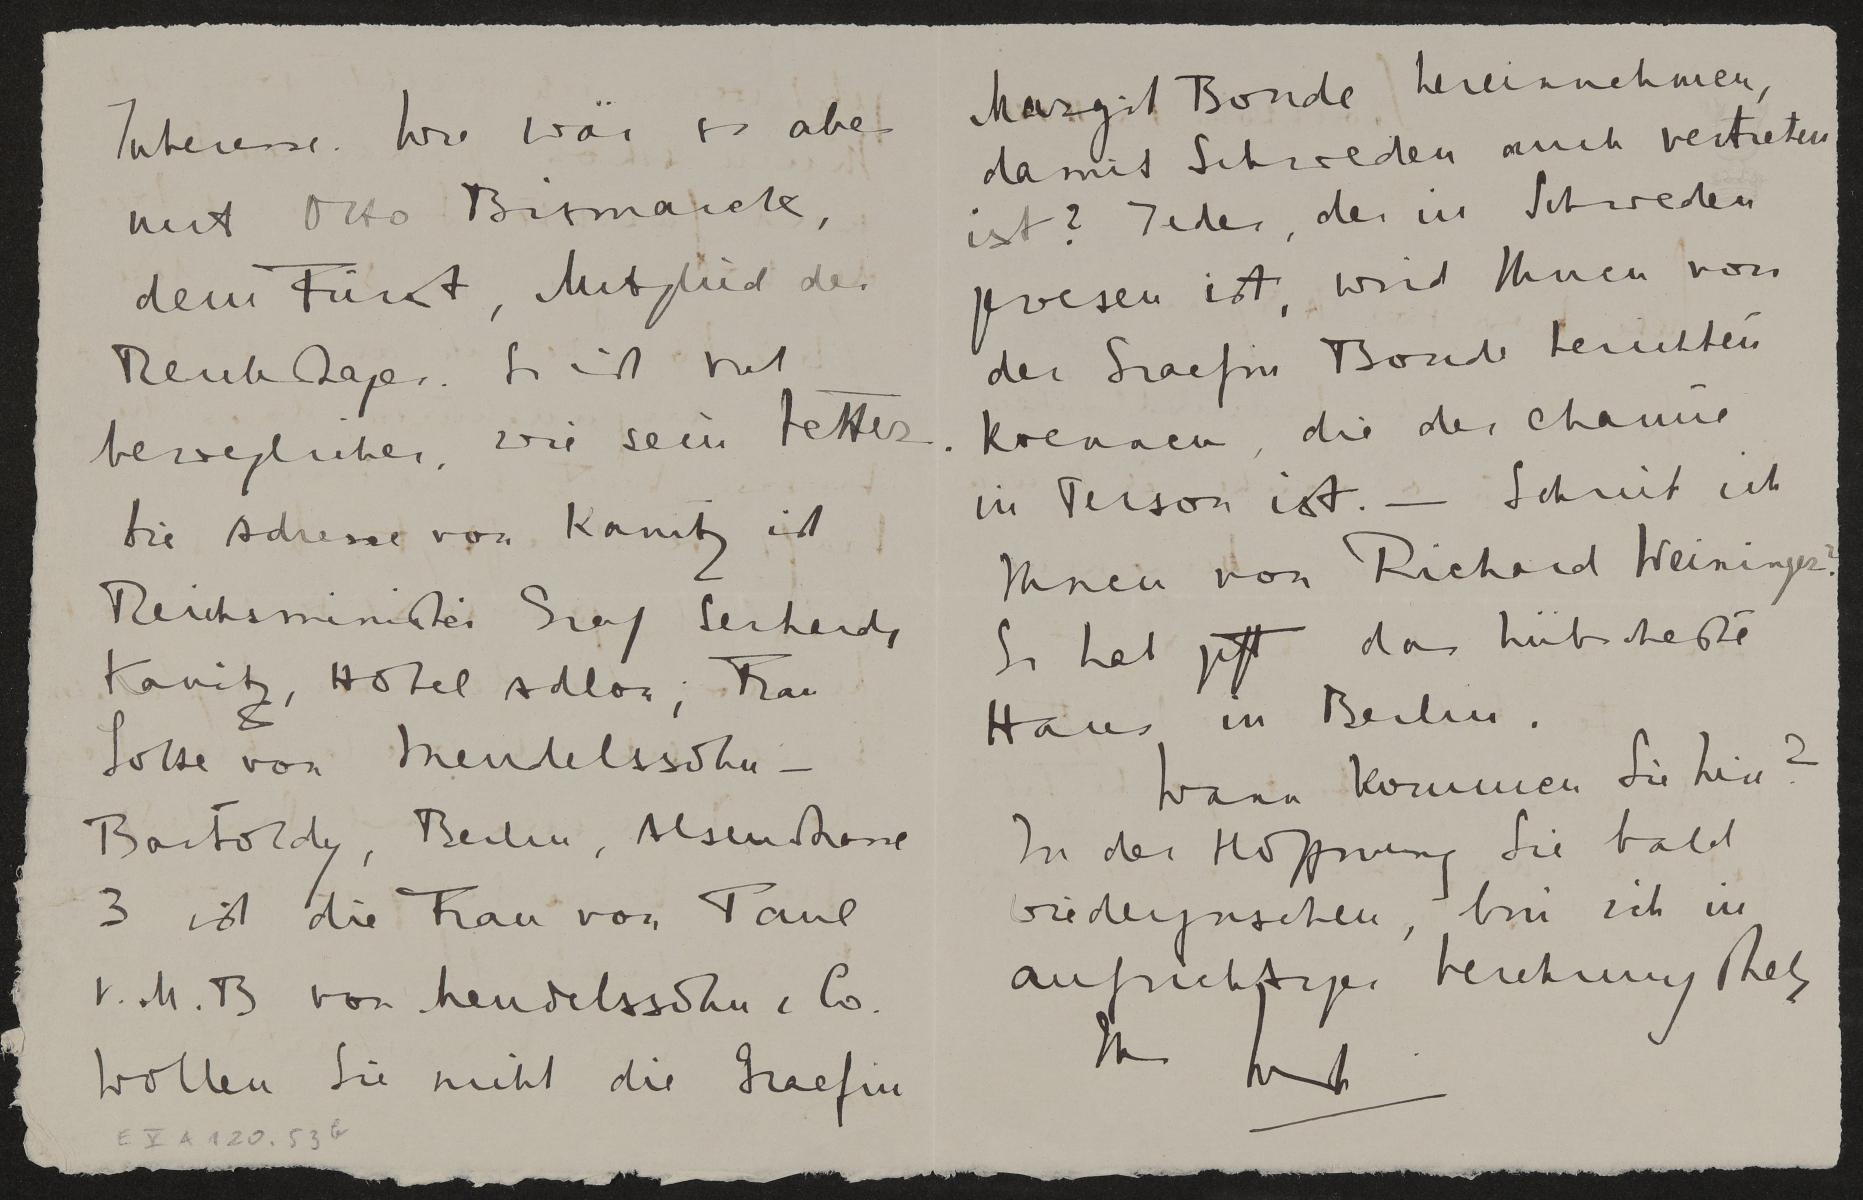 Interesse. Wie wär es aber
mit Otto Bismarck,
dem Fürst, Mitglied des
Reichstages. Er ist viel
beweglicher, wie sein Vetter.
Die Adresse von Kanitz ist
Reichsminister Graf Gerhard
Kanitz, Hotel Adlon; Frau
Lotte von Mendelssohn-
Bartoldy, Berlin, Alsenstrasse
3 ist die Frau von Paul
v. M. B von Mendelssohn & Co.
Wollen Sie nicht die Graefin
E V A 120.53 b
Margit Bonde hereinnehmen,
damit Schweden auch vertreten
ist? Jeder, der in Schweden
gewesen ist, wird Ihnen von
der Graefin Bonde berichten
koennen, die der charme
in Person ist. — Schrieb ich
Ihnen von Richard Weininger?
Er hat jetzt das hübscheste
Haus in Berlin.
Wann kommen Sie hin?
In der Hoffnung Sie bald
wiederzusehen, bin ich in
aufrichtiger Verehrung stets
Ihr